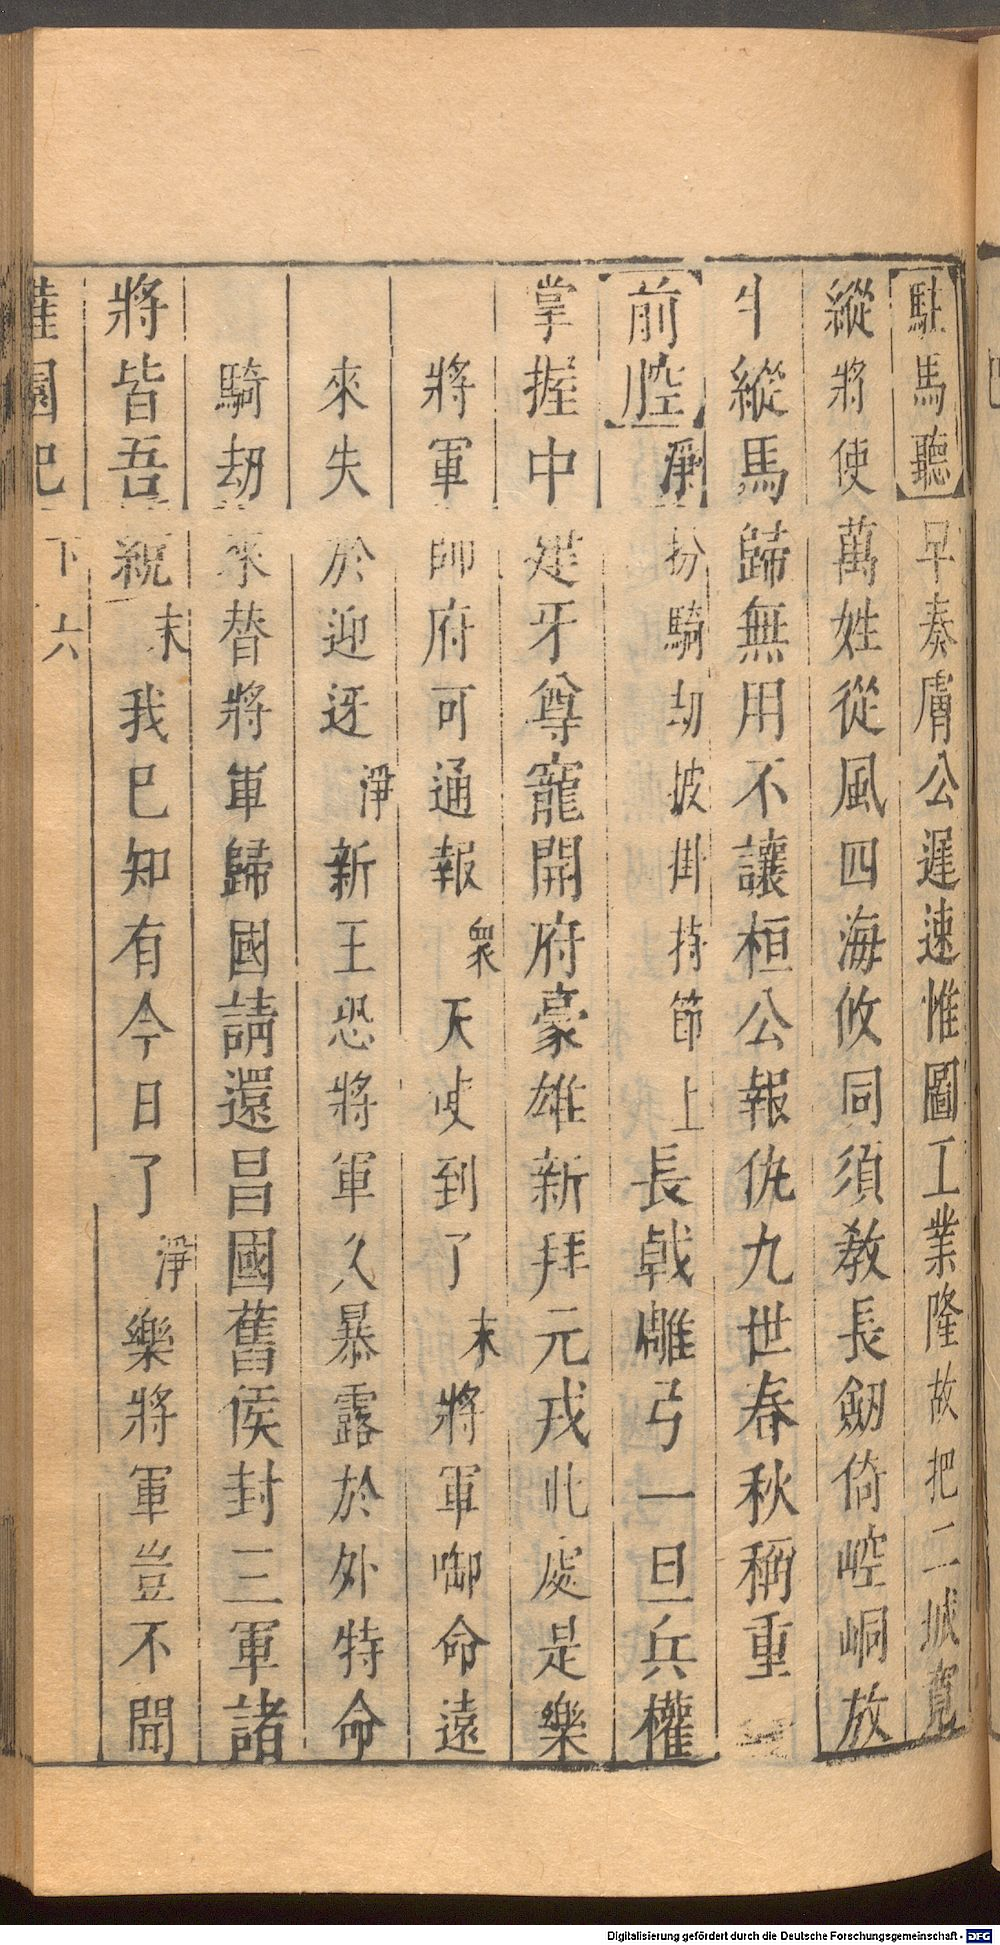 駐馬聽早奏膚公遲速惟圖工業隆故把二城寬
縱將使萬姓從風四海攸同須教長劒倚崆峒放
牛縱馬歸無用不讓桓公報仇九世春秋稱重
前腔淨扮騎劫披掛持節上長戟雕弓一旦兵權
掌握中建牙尊寵開府豪雄新拜元戎此處是樂
將軍帥府可通報衆天使到了末將軍啣命遠
來失於迎迓淨新王恐將軍久暴露於外特命
騎劫來替將軍歸國請還昌國舊侯封三軍諸
將皆吾統末我已知有今日了淨樂將軍豈不聞
園記 下 六
Digitalisierung gefördert durch die Deutsche Forschungsgemeinschaft - DFG